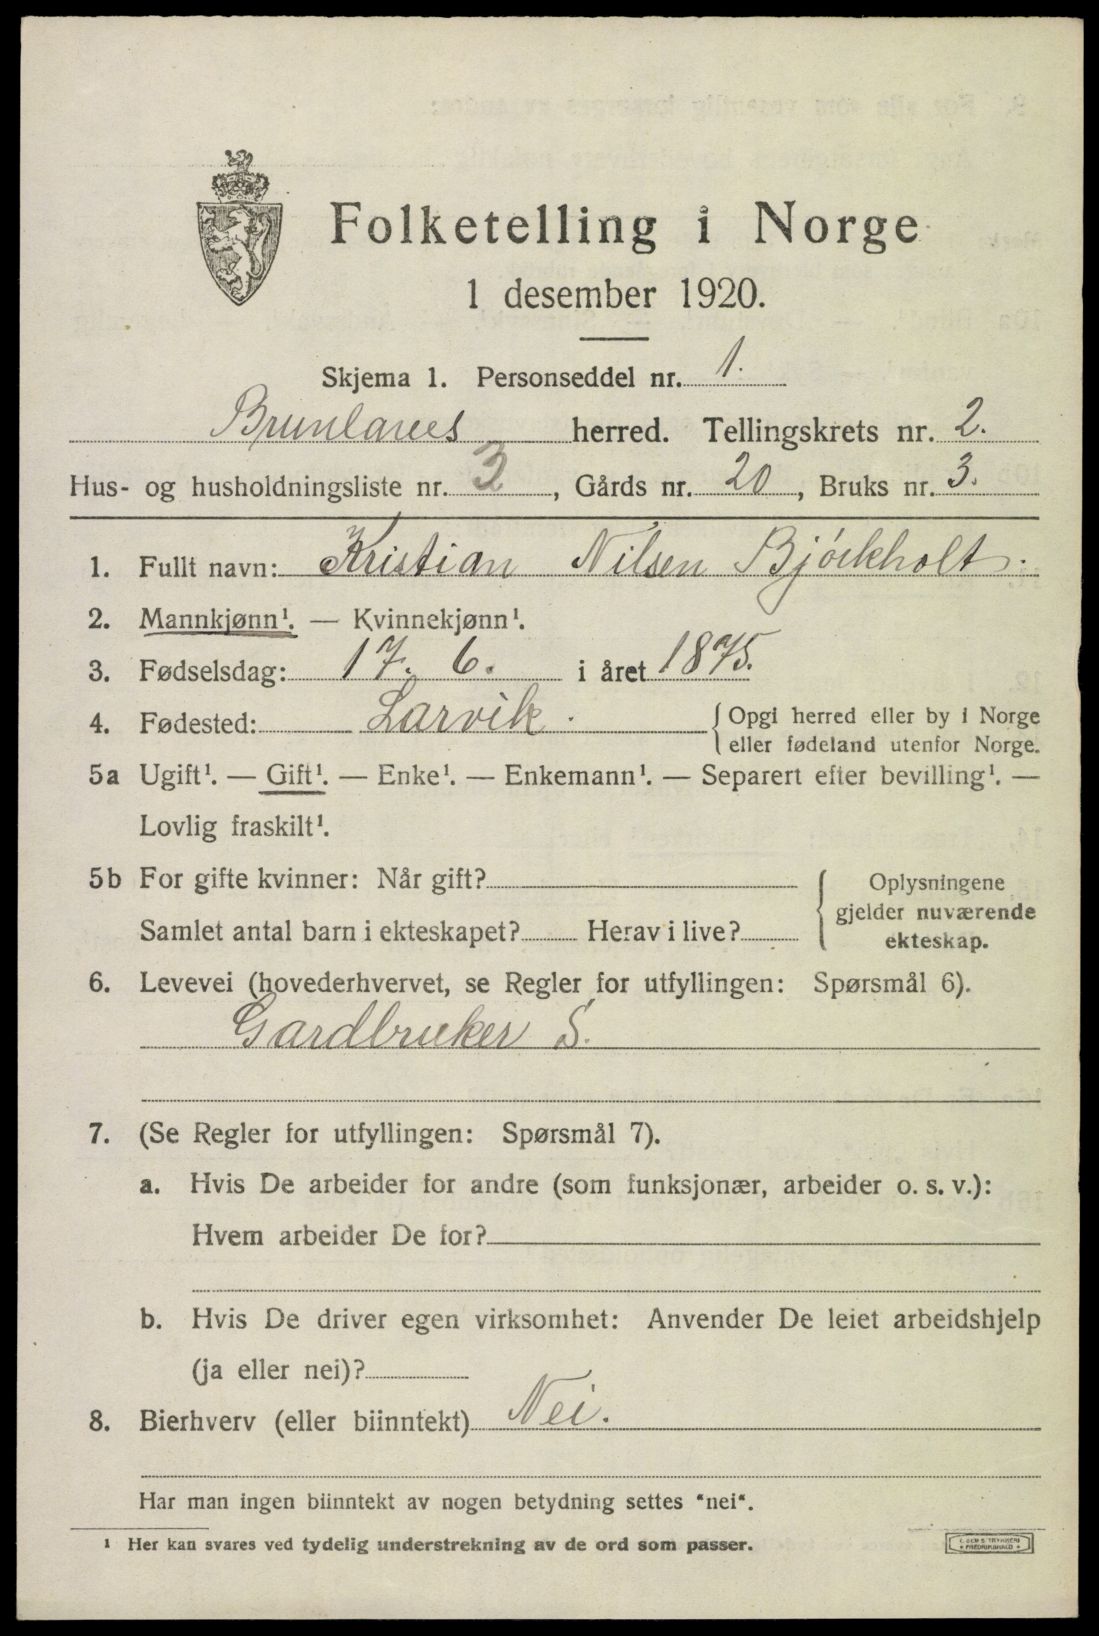 Folketelling i Norge
1 desember 1920.
Skjema 1. Personseddel nr. 1.
Brunlanes herred. Tellingskrets nr. 2.
Hus- og husholdningsliste nr. 3, Gårds nr. 20, Bruks nr. 3.
1. Fullt navn: Kristian Nilsen Bjørkholt.
2. Mannkjønn¹. — Kvinnekjønn¹.
3. Fødselsdag: 17. 6. i året 1875.
4. Fødested: Larvik. {Opgi herred eller by i Norge
eller fødeland utenfor Norge.
5a Ugift¹. — Gift¹. — Enke¹. — Enkemann¹. — Separert efter bevilling¹. —
Lovlig fraskilt¹.
5b For gifte kvinner: Når gift?
Samlet antal barn i ekteskapet? Herav i live?
{Oplysningene
gjelder nuværende
ekteskap.
6. Levevei (hovederhvervet, se Regler for utfyllingen: Spørsmål 6).
Gardbruker S.
7. (Se Regler for utfyllingen: Spørsmål 7).
a. Hvis De arbeider for andre (som funksjonær, arbeider o. s. v.):
Hvem arbeider De for?
b. Hvis De driver egen virksomhet: Anvender De leiet arbeidshjelp
(ja eller nei)?
8. Bierhverv (eller biinntekt) Nei.
Har man ingen biinntekt av nogen betydning settes "nei".
¹ Her kan svares ved tydelig understrekning av de ord som passer.